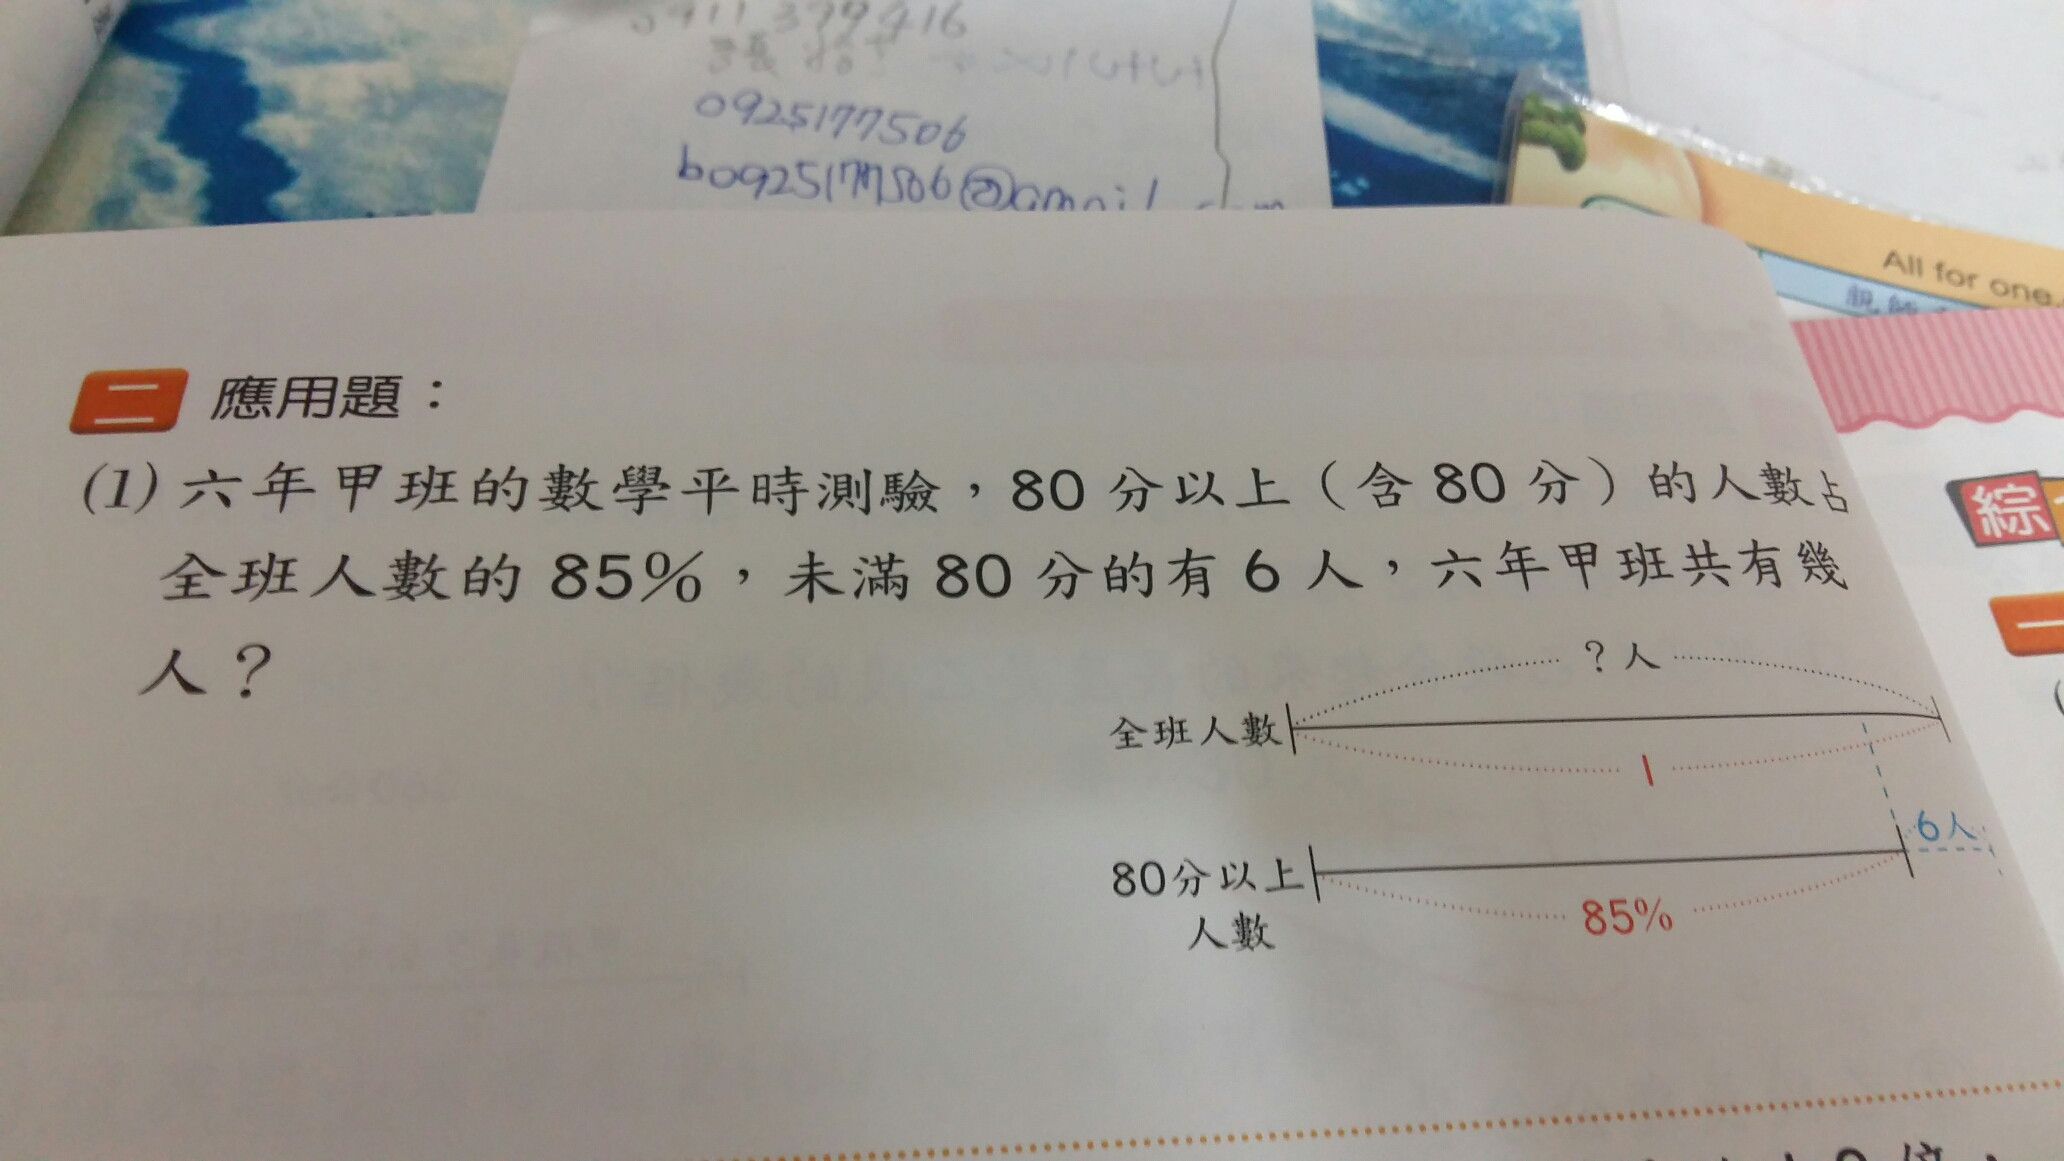 0911399416
0925177506
b0925177506@gmail.com
All for one
二 應用題：
(1) 六年甲班的數學平時測驗，80 分以上（含 80 分）的人數占
全班人數的 85%，未滿 80 分的有 6 人，六年甲班共有幾
人？
？人
全班人數
1
6人
80分以上
人數
85%
綜
一